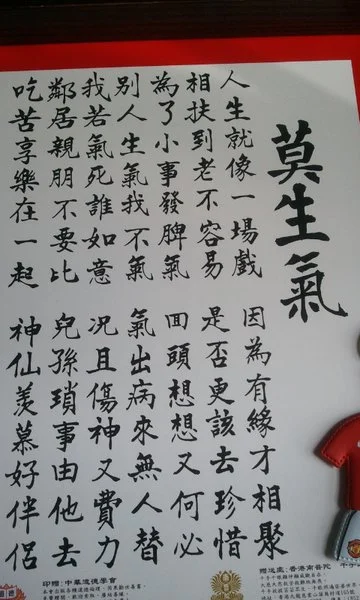 莫生氣
人生就像一場戲 因為有緣才相聚
相扶到老不容易 是否更該去珍惜
為了小事發脾氣 囬頭想想又何必
別人生氣我不氣 氣出病來無人替
我若氣死誰如意 況且傷神又費力
鄰居親朋不要比 兒孫瑣事由他去
吃苦享樂在一起 神仙羨慕好伴侶
印贈：中華道德學會
贈送處：香港南普陀